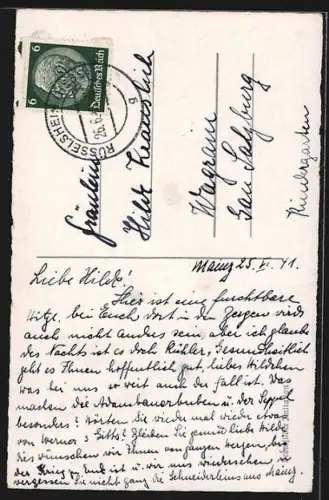 6
Deutsches Reich
6
RÜSSELSHEIM
26.6.
g
Fräulein
Hilde
Wagrain
Gau Salzburg
Kindergarten
Mainz 25. VI. 41.
Liebe Hilde!
Hier ist eine furchtbare
Hitze, bei Euch dort in den Bergen wirds
auch nicht anders sein, aber ich glaube
des Nachts ist es doch kühler, Gesundheitlich
geht es Ihnen hoffentlich gut, liebes Hildchen
was bei uns so weit auch der Fall ist. Was
machen die u. der Seppl
besonders? Hörten Sie wieder mal wieder etwas
von Werner? Bleiben Sie gesund liebe Hilde
dies wünschen wir Ihnen von ganzem Herzen, bis
der Krieg zu End ist u. wir uns wiedersehen
vergessen Sie nicht ganz die Schneiderleins aus Mainz.